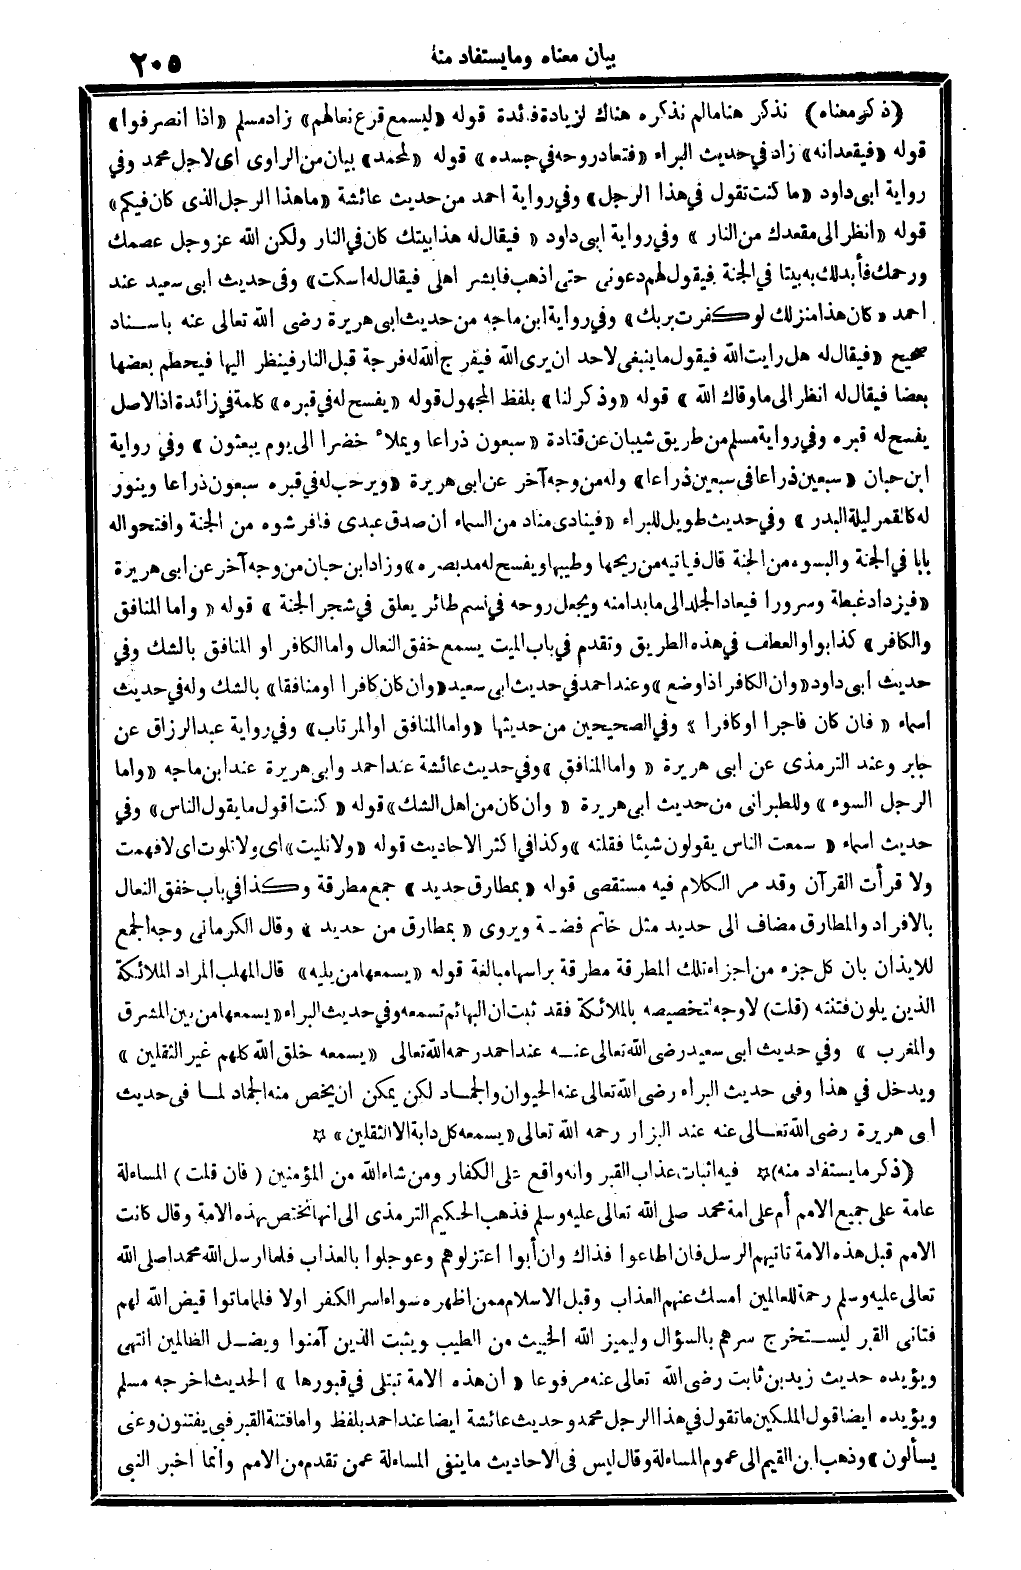 بيان معناه ومايستفاد منه
٢٠٥
(ذكر معناه) نذكر هنا مالم نذكره هناك لزيادة فائدة قوله «ليسمع قرع نعالهم» زاد مسلم «اذا انصرفوا»
قوله «فيقعدانه» زاد في حديث البراء «فتعاد روحه في جسده» قوله «لمحمد» بيان من الراوى اى لاجل محمد وفي
رواية ابى داود «ما كنت تقول في هذا الرجل» وفي رواية احمد من حديث عائشة «ما هذا الرجل الذى كان فيكم»
قوله «انظر الى مقعدك من النار» وفي رواية ابى داود «فيقال له هذا بيتك كان في النار ولكن الله عز وجل عصمك
ورحمك فأبدلك به بيتا في الجنة فيقول لهم دعونى حتى اذهب فابشر اهلى فيقال له اسكت» وفى حديث ابى سعيد عند
احمد «كان هذا منزلك لو كفرت بربك» وفي رواية ابن ماجه من حديث ابى هريرة رضى الله تعالى عنه باسناد
صحيح «فيقال له هل رايت الله فيقول ما ينبغى لاحد ان يرى الله فيفرج الله له فرجة قبل النار فينظر اليها فيحطم بعضها
بعضا فيقال له انظر الى ما وقاك الله» قوله «وذكر لنا» بلفظ المجهول قوله «يفسح له في قبره» كلمة في زائدة اذ الاصل
يفسح له قبره وفي رواية مسلم من طريق شيبان عن قتادة «سبعون ذراعا ويملاء خضرا الى يوم يبعثون» وفي رواية
ابن حبان «سبعين ذراعا فى سبعين ذراعا» وله من وجه آخر عن ابى هريرة «ويرحب له في قبره سبعون ذراعا وينور
له كالقمر ليلة البدر» وفي حديث طويل للبراء «فينادى مناد من السماء ان صدق عبدى فافرشوه من الجنة وافتحوا له
بابا في الجنة والبسوه من الجنة قال فياتيه من ريحها وطيبها ويفسح له مد بصره» وزاد ابن حبان من وجه آخر عن ابى هريرة
«فيزداد غبطة وسرورا فيعاد الجلد الى ما بدا منه ويجعل روحه في نسم طائر يعلق في شجر الجنة» قوله «واما المنافق
والكافر» كذا بواو العطف في هذه الطريق وتقدم في باب الميت يسمع خفق النعال واما الكافر او المنافق بالشك وفي
حديث ابى داود «وان الكافر اذا وضع» وعند احمد في حديث ابى سعيد «وان كان كافرا او منافقا» بالشك وله في حديث
اسماء «فان كان فاجرا او كافرا» وفي الصحيحين من حديثها «واما المنافق او المرتاب» وفي رواية عبدالرزاق عن
جابر وعند الترمذى عن ابى هريرة «واما المنافق» وفي حديث عائشة عند احمد وابى هريرة عند ابن ماجه «واما
الرجل السوء» وللطبرانى من حديث ابى هريرة «وان كان من اهل الشك» قوله «كنت اقول ما يقول الناس» وفي
حديث اسماء «سمعت الناس يقولون شيئا فقلته» وكذا في اكثر الاحاديث قوله «ولا تليت» اى ولا تلوت اى لا فهمت
ولا قرأت القرآن وقد مر الكلام فيه مستقصى قوله «بمطارق حديد» جمع مطرقة وكذا في باب خفق النعال
بالافراد والمطارق مضاف الى حديد مثل خاتم فضة ويروى «بمطارق من حديد» وقال الكرمانى وجه الجمع
للايذان بان كل جزء من اجزاء تلك المطرقة مطرقة براسها مبالغة قوله «يسمعها من يليه» قال المهلب المراد الملائكة
الذين يلون فتنته (قلت) لا وجه لتخصيصه بالملائكة فقد ثبت ان البهائم تسمعه وفي حديث البراء «يسمعها من بين المشرق
والمغرب» وفي حديث ابى سعيد رضى الله تعالى عنه عند احمد رحمه الله تعالى «يسمعه خلق الله كلهم غير الثقلين»
ويدخل في هذا وفى حديث البراء رضى الله تعالى عنه الحيوان والجماد لكن يمكن ان يخص منه الجماد لما فى حديث
ابى هريرة رضى الله تعالى عنه عند البزار رحمه الله تعالى «يسمعه كل دابة الا الثقلين» ☆
(ذكر ما يستفاد منه) ☆ فيه اثبات عذاب القبر وانه واقع على الكفار ومن شاء الله من المؤمنين (فان قلت) المساءلة
عامة على جميع الامم أم على امة محمد صلى الله تعالى عليه وسلم فذهب الحكيم الترمذى الى انها تختص بهذه الامة وقال كانت
الامم قبل هذه الامة تاتيهم الرسل فان اطاعوا فذاك وان أبوا اعتزلوهم وعوجلوا بالعذاب فلما ارسل الله محمدا صلى الله
تعالى عليه وسلم رحمة للعالمين أمسك عنهم العذاب وقبل الاسلام ممن اظهره سواء اسر الكفر اولا فلما ماتوا قيض الله لهم
فتانى القبر ليستخرج سرهم بالسؤال وليميز الله الخبيث من الطيب ويثبت الذين آمنوا ويضل الظالمين انتهى
ويؤيده حديث زيد بن ثابت رضى الله تعالى عنه مرفوعا «ان هذه الامة تبتلى في قبورها» الحديث اخرجه مسلم
ويؤيده ايضا قول الملكين ما تقول في هذا الرجل محمد وحديث عائشة ايضا عند احمد بلفظ واما فتنة القبر فبى يفتنون وعنى
يسألون» وذهب ابن القيم الى عموم المساءلة وقال ليس فى الاحاديث ما ينفى المساءلة عمن تقدم من الامم وأنما اخبر النبى